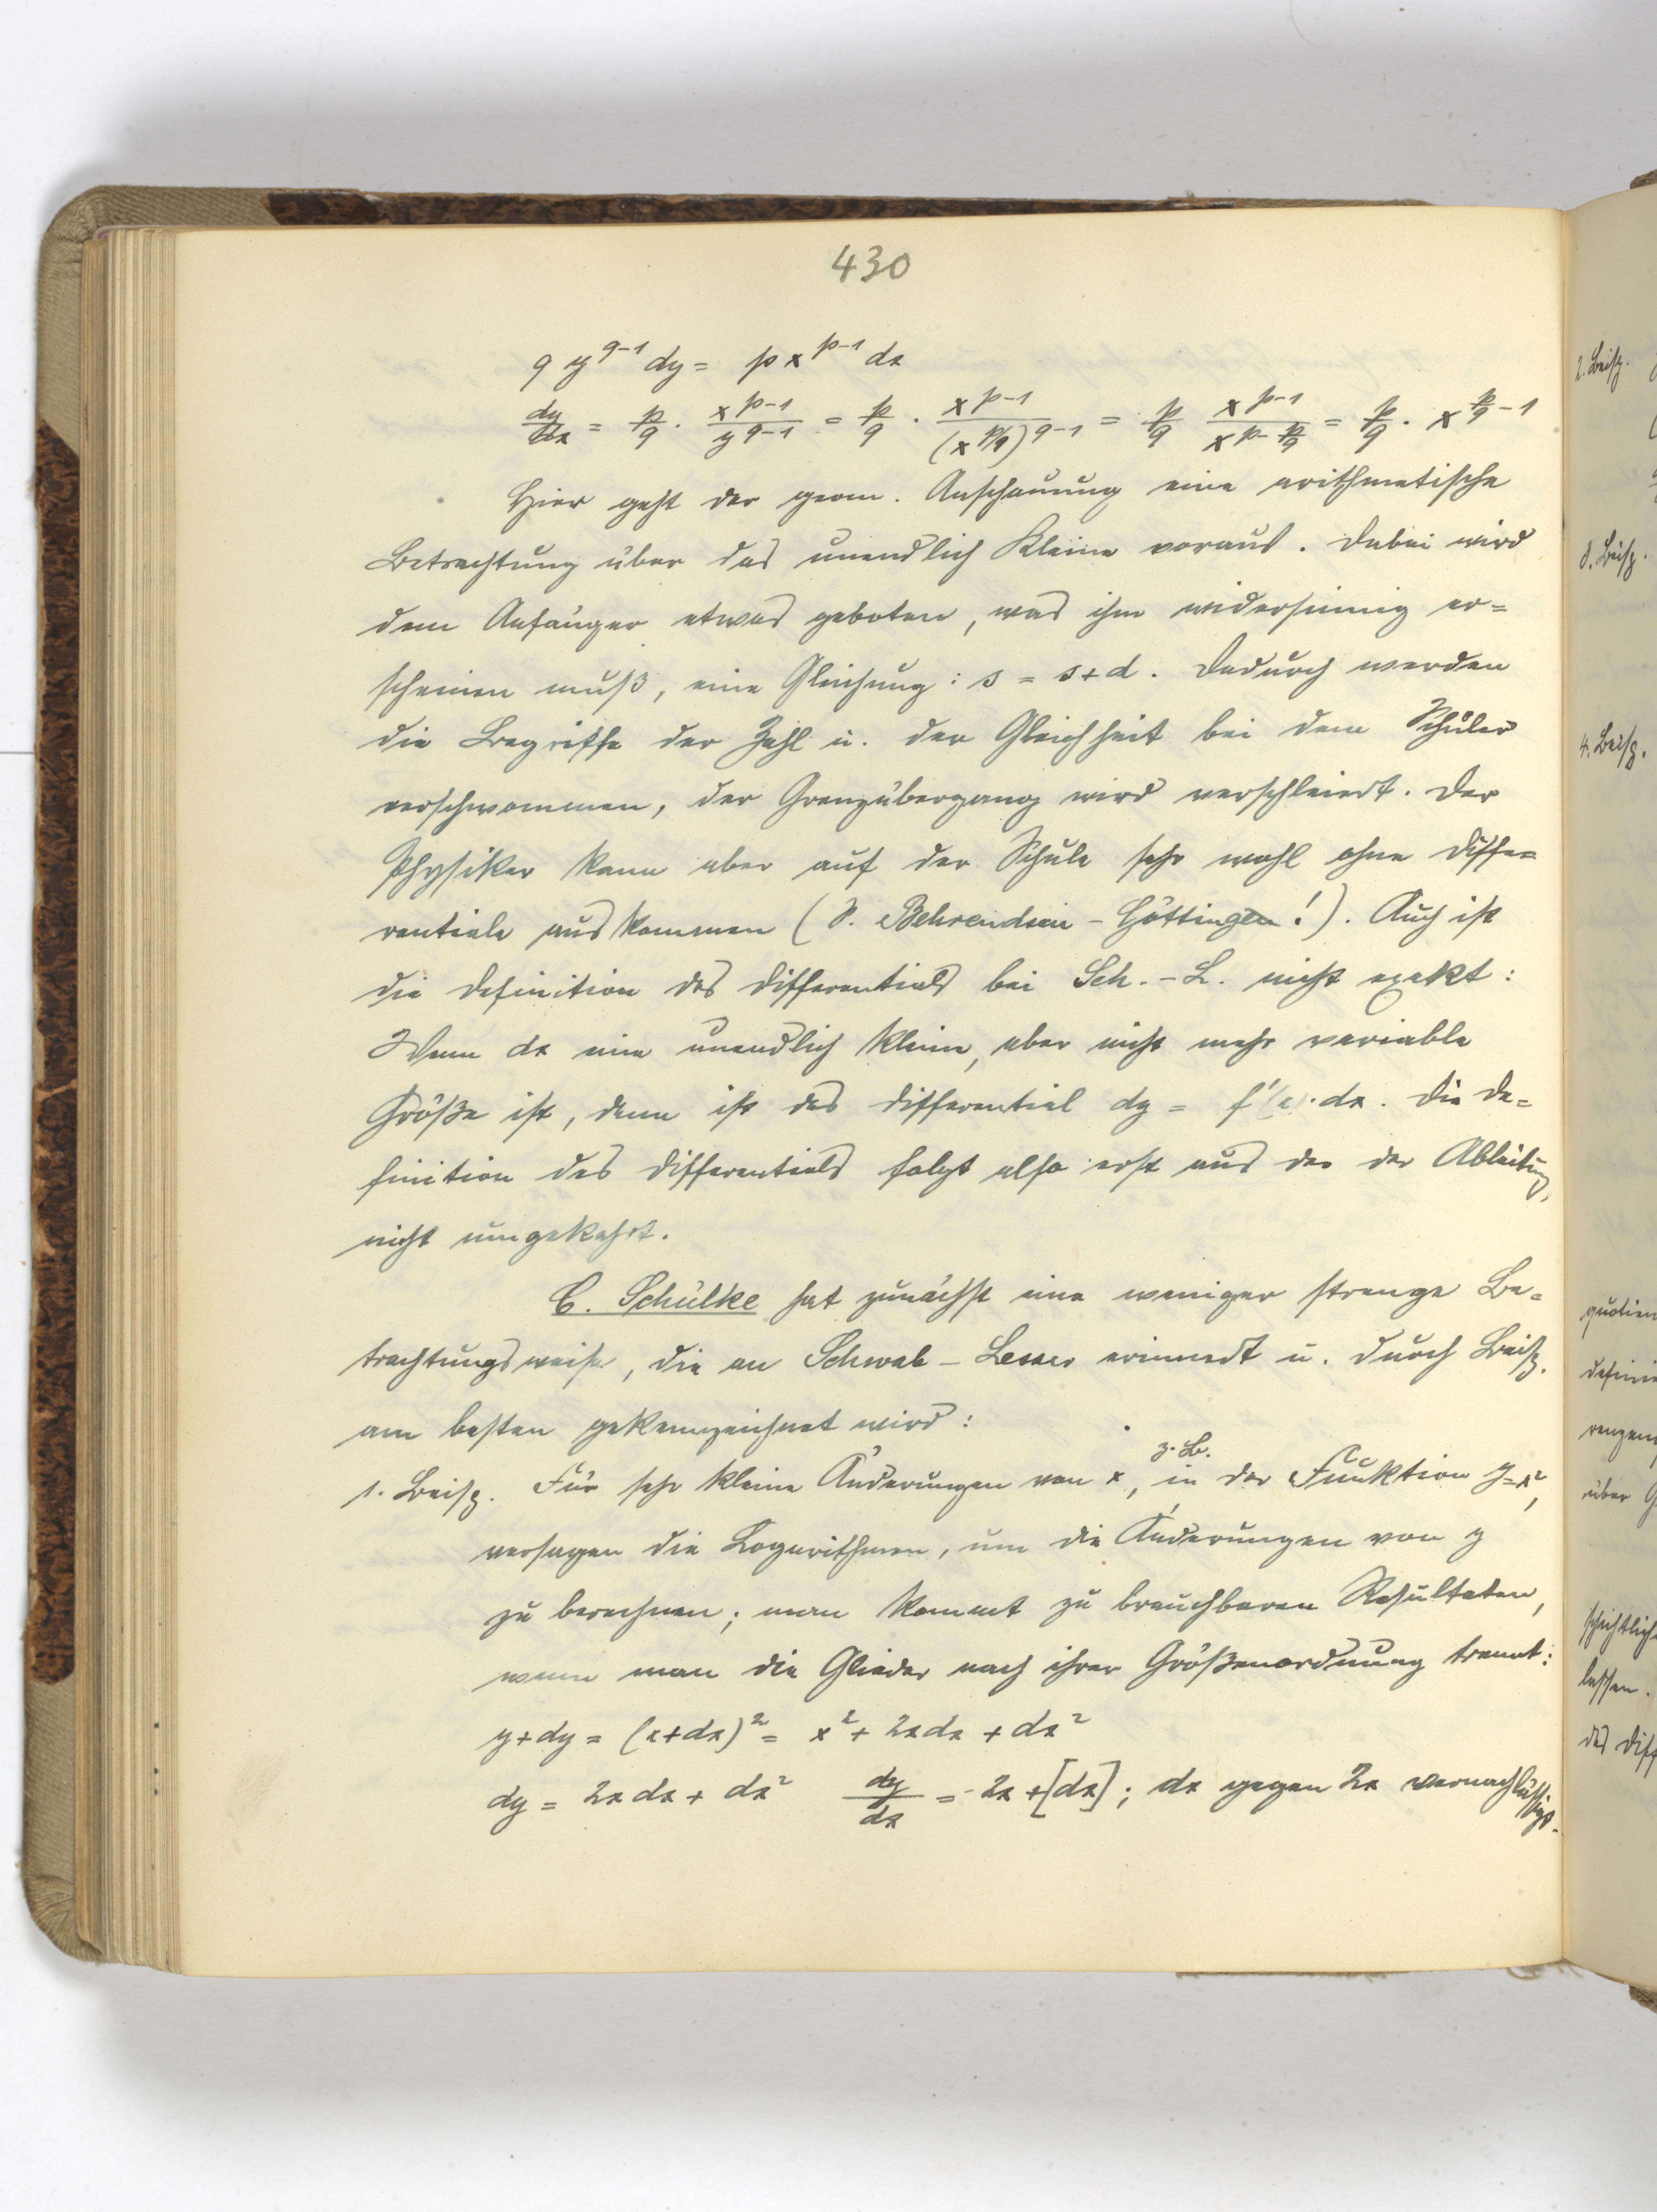 430
q y^(q-1) dy = p x^(p-1) dx
dy/dx = p/q · x^(p-1)/y^(q-1) = p/q · x^(p-1)/(x^(p/q))^(q-1) = p/q x^(p-1)/x^(p-p/q) = p/q · x^(p/q-1)
Hier geht der geom. Anschauung eine arithmetische
Betrachtung über das unendlich Kleine voraus. Dabei wird
dem Anfänger etwas geboten, was ihm widersinnig er=
scheinen muß, eine Gleichung: s = s+d. Dadurch werden
die Begriffe der Zahl u. der Gleichheit bei dem Schüler
verschwommen, der Grenzübergang wird verschleiert. Der
Physiker kann aber auf der Schule sehr wohl ohne Diffe=
rentiale auskommen (S. Behrendsen - Göttingen!). Auch ist
die Definition des Differentials bei Sch.-L. nicht exakt:
Wenn dx eine unendlich kleine, aber nicht mehr variable
Größe ist, dann ist das Differential dy = f'(x)·dx. Die De=
finition des Differentials folgt also erst aus der der Ableitung,
nicht umgekehrt.
C. Schülke hat zunächst eine weniger strenge Be=
trachtungsweise, die an Schwab - Lesser erinnert u. durch Beisp.
am besten gekennzeichnet wird:
1. Beisp. Für sehr kleine Änderungen von x, z.B. in der Funktion y=x²,
versagen die Logarithmen, um die Änderungen von y
zu berechnen; man kommt zu brauchbaren Resultaten,
wenn man die Glieder nach ihrer Größenordnung trennt:
y+dy = (x+dx)² = x² + 2xdx + dx²
dy = 2xdx + dx² dy/dx = 2x +[dx]; dx gegen 2x vernachlässigt.
2. Beisp.
3. Beisp.
4. Beisp.